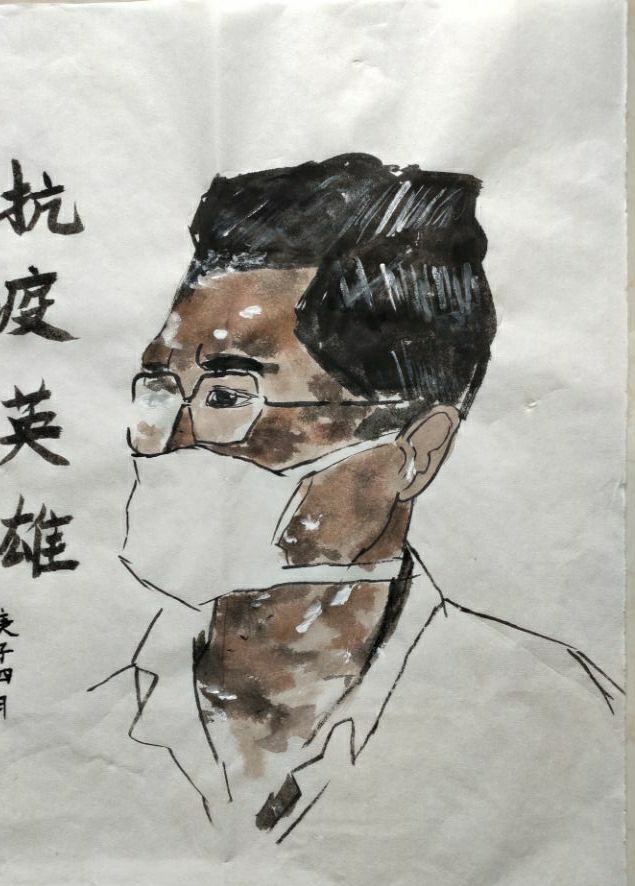 抗疫英雄
庚子四月